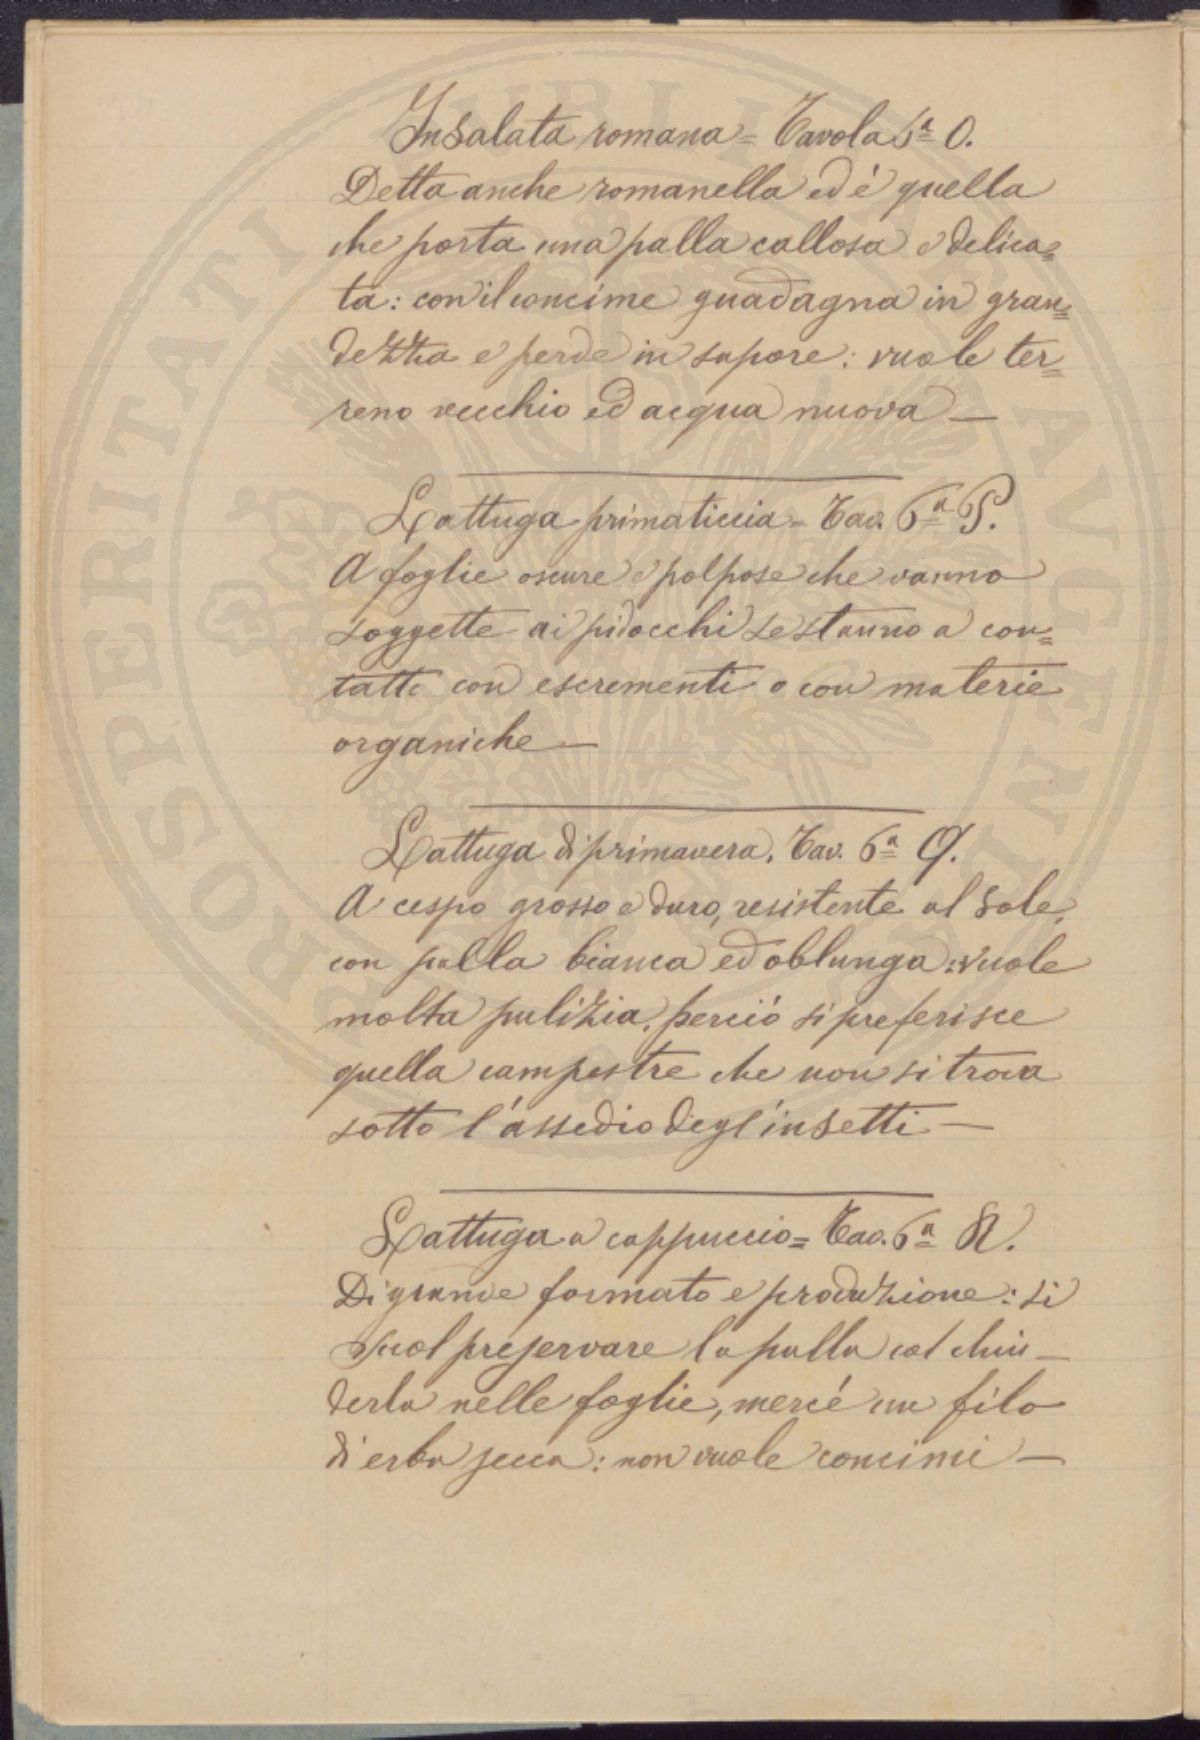 Insalata romana = Tavola 6ª O.
Detta anche romanella ed è quella
che porta una palla callosa e delica=
ta: con il concime guadagna in gran=
dezza e perde in sapore: vuole ter=
reno vecchio ed acqua nuova —
Lattuga primaticcia = Tav. 6ª P.
A foglie oscure e polpose che vanno
soggette ai pidocchi se stanno a con=
tatto con escrementi o con materie
organiche —
Lattuga di primavera. Tav. 6ª Q.
A cespo grosso e duro, resistente al sole,
con palla bianca ed oblunga: vuole
molta pulizia, perciò si preferisce
quella campestre che non si trova
sotto l'assedio degl'insetti —
Lattuga a cappuccio = Tav. 6ª R.
Di grande formato e produzione: si
suol preservare la palla col chiu—
derla nelle foglie, mercé un filo
di erba secca: non vuole concimi —
PROSPERITATI PUBLICAE AVGENDAE